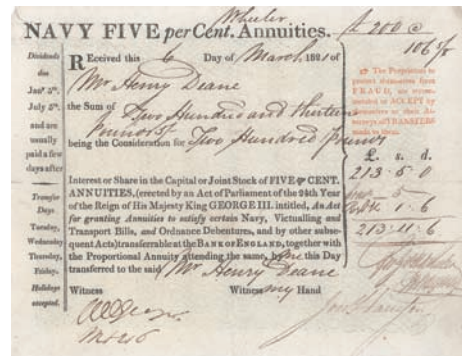 Wheeler
NAVY FIVE per Cent. Annuities.
£ 200 @
106 5/8
Dividends
due
Janʸ 5ᵗʰ.
July 5ᵗʰ.
and are
usually
paid a few
days after
Transfer
Days
Tuesday,
Wednesday
Thursday,
Friday.
Holidays
excepted.
Received this 6 Day of March 1821 of
Mr Henry Deane
the Sum of Two Hundred and thirteen
Pounds 5/
being the Consideration for Two Hundred pounds
Interest or Share in the Capital or Joint Stock of FIVE per CENT.
ANNUITIES, (erected by an Act of Parliament of the 24th Year
of the Reign of His Majesty King GEORGE III. intitled, An Act
for granting Annuities to satisfy certain Navy, Victualling and
Transport Bills, and Ordnance Debentures, and by other subse-
quent Acts) transferrable at the BANK OF ENGLAND, together with
the Proportional Annuity attending the same, by me this Day
transferred to the said Mr Henry Deane
Witness
Witness my Hand
The Proprietors to
protect themselves from
FRAUD, are recom-
mended to ACCEPT by
themselves or their At-
torneys all TRANSFERS
made to them.
£. s. d.
213 5 0
5
1 6
213 11 6